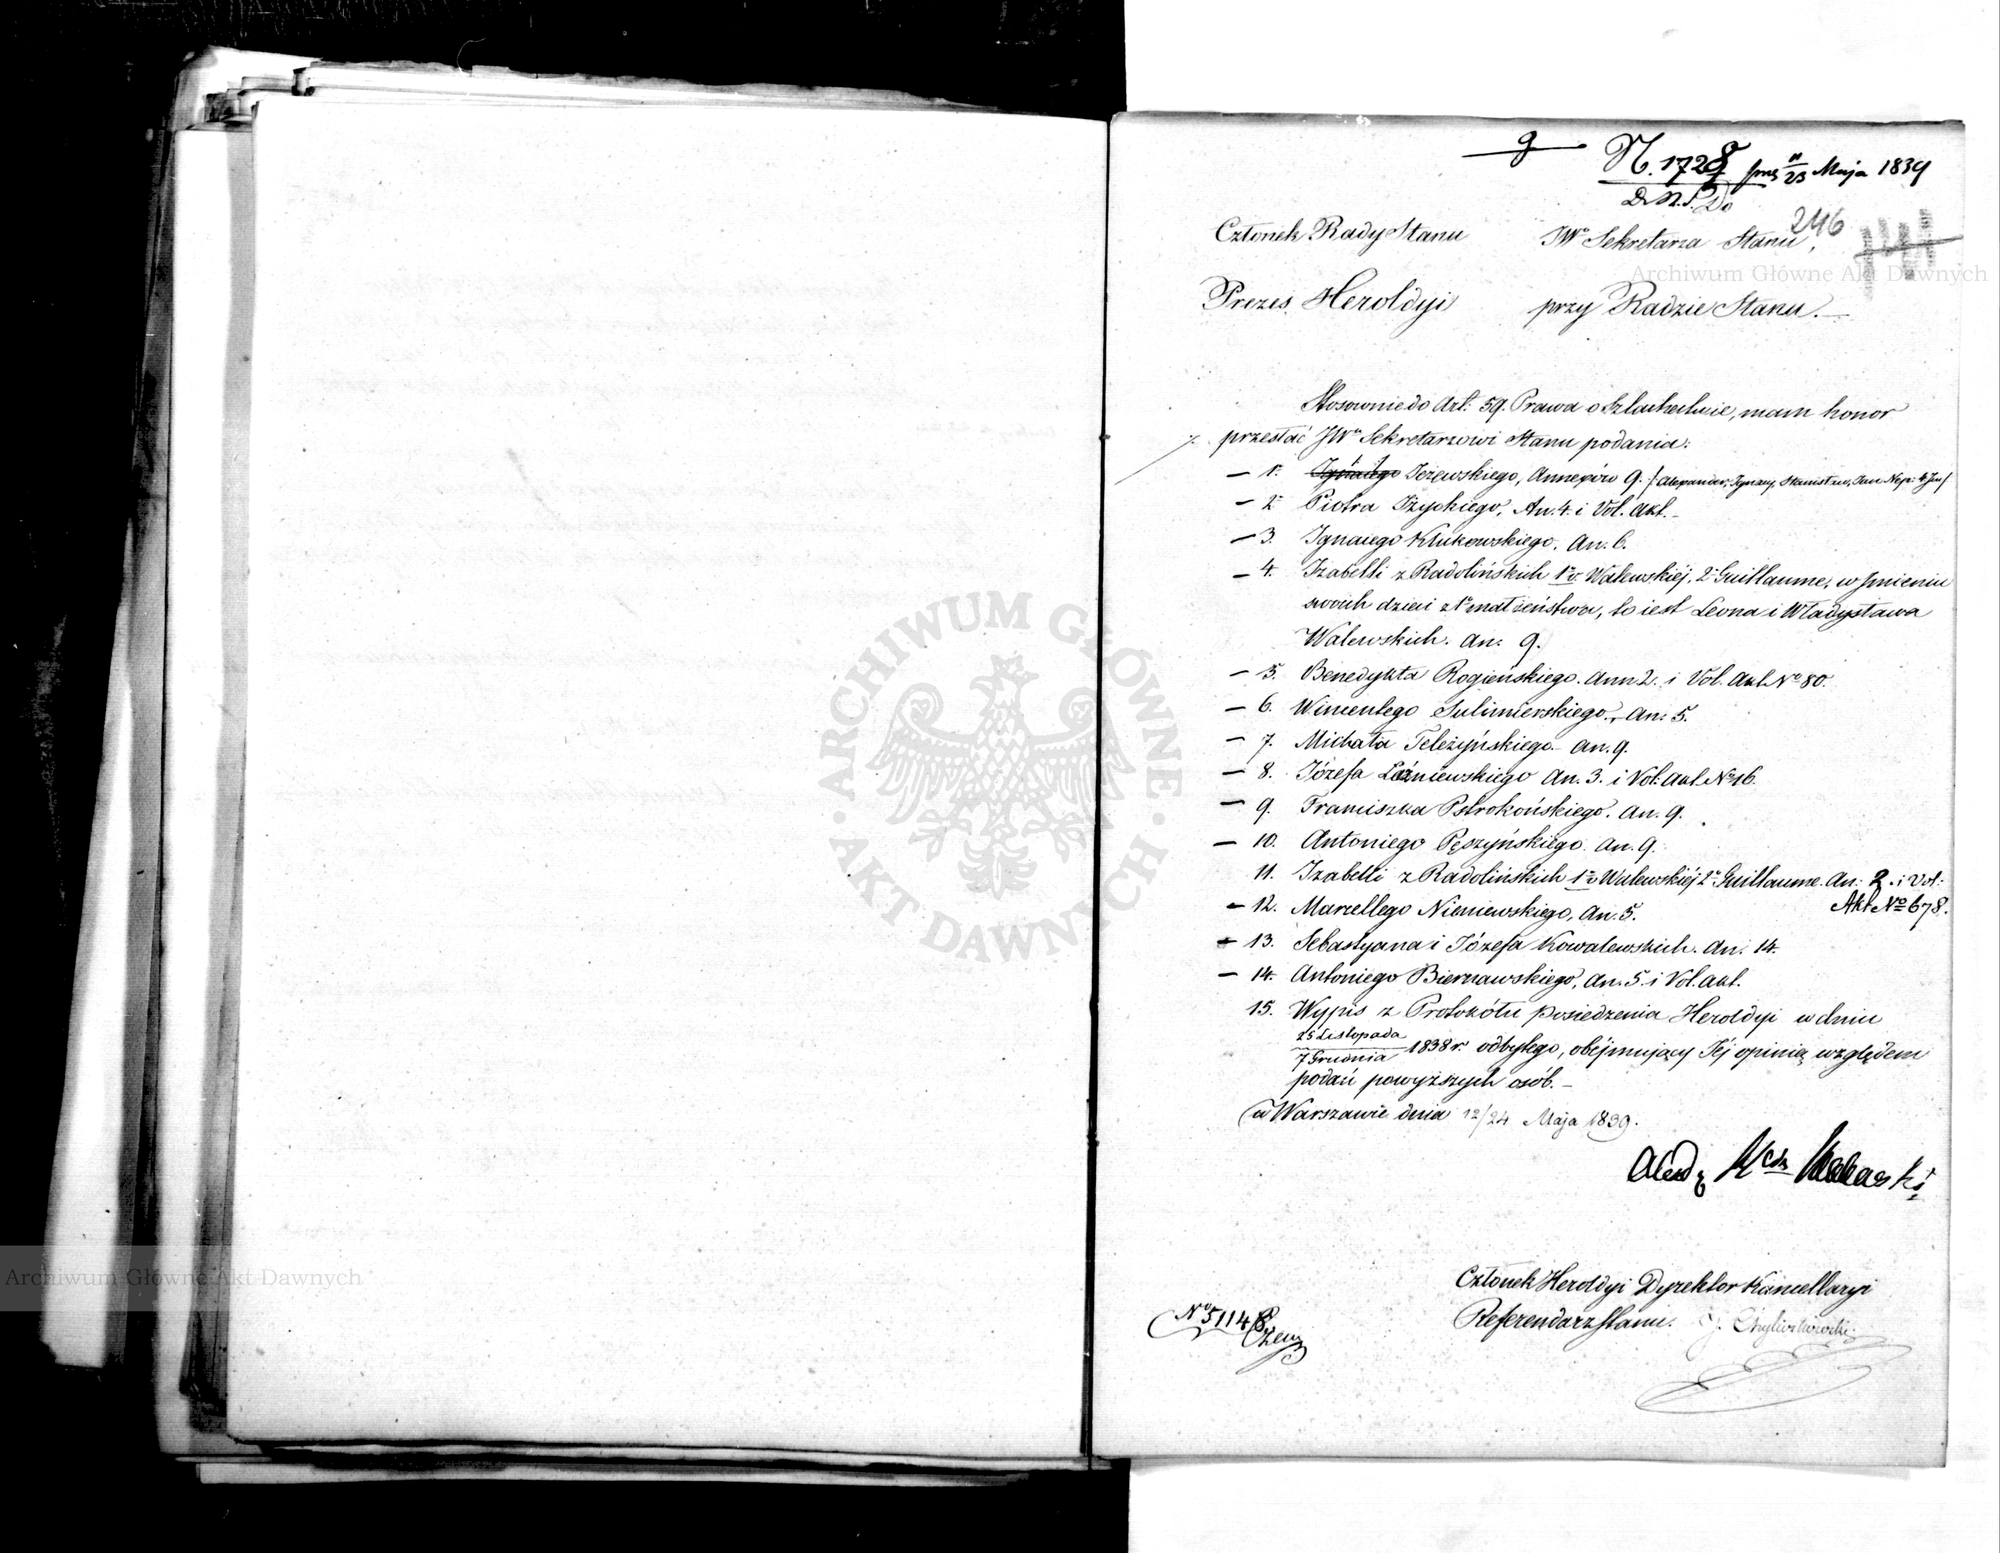 9
N. 1728 prez 11/23 Maja 1839
D.N.S. Do
Członek Rady Stanu JWo Sekretarza Stanu,
246
Archiwum Główne Akt Dawnych
Prezes Heroldyi przy Radzie Stanu.
Stosownie do Art: 59. Prawa o Szlachectwie, mam honor
przesłać JWu Sekretarzowi Stanu podania:
— 1. Ignacego Jeżewskiego, Annexów 9. /Alexander, Ignacy, Stanisław, Jan Nep: i Józef/
— 2. Piotra Iżyckiego, An. 4. i Vol. Akt.
— 3. Ignacego Klukowskiego. An. 6.
— 4. Izabelli z Radolińskich 1o v. Walewskiéj, 2o Guillaume, w Imieniu
swoich dzieci z 1o małżeństwa, to iest Leona i Władysława
Walewskich. An: 9.
— 5. Benedykta Rogieńskiego. Ann 2. i Vol. Akt. No 80.
— 6. Wincentego Sulimierskiego. An: 5.
— 7. Michała Teleżyńskiego An. 9.
— 8. Józefa Leźniewskiego An. 3. i Vol: Akt. No 16.
— 9. Franciszka Pstrokońskiego. An. 9.
— 10. Antoniego Pęszyńskiego. An. 9.
11. Izabelli z Radolińskich 1o v. Walewskiéj 2o Guillaume. An: 2. i Vol:
Akt No 678.
— 12. Marcellego Nieniewskiego, An. 5.
— 13. Sebastyana i Józefa Kowalewskich. An. 14.
— 14. Antoniego Biernawskiego, An. 5. i Vol. Akt.
15. Wypis z Protokółu posiedzenia Heroldyi w dniu
25 Listopada
7 Grudnia 1838 r. odbytego, obejmujący Jéj opinią względem
podań powyższych osób. —
w Warszawie dnia 12/24 Maja 1839.
Członek Heroldyi Dyrektor Kancellaryi
Referendarz Stanu.
No 5114/8
ARCHIWUM GŁÓWNE
AKT DAWNYCH
Archiwum Główne Akt Dawnych